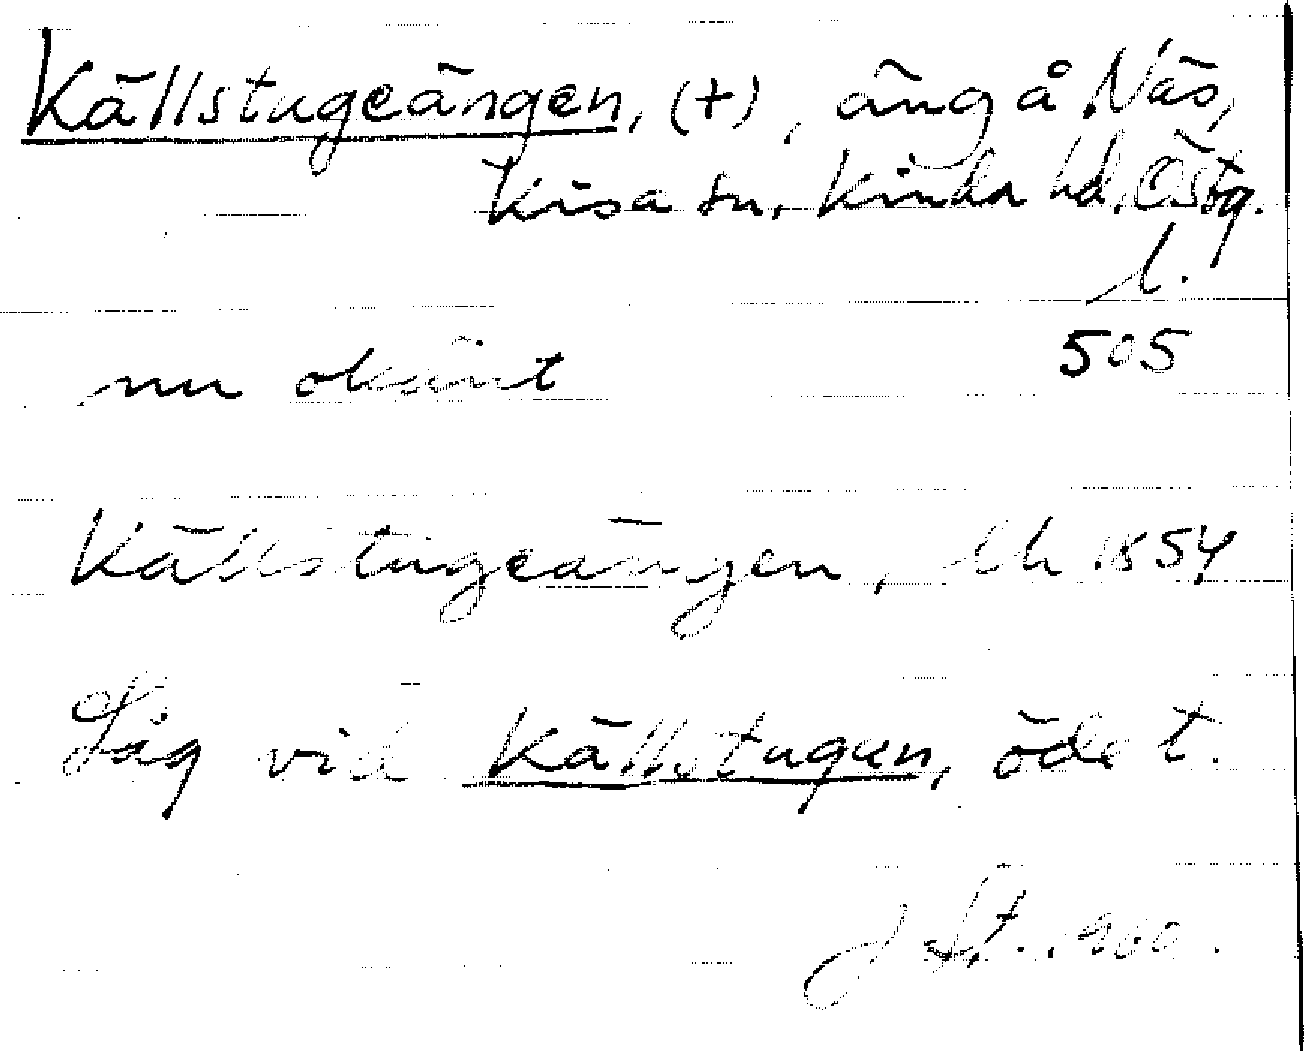 Källstugeängen, (+), äng å Näs,
Kisa sn, Kinda hd, Östg.
l.
505
nu okänt
Källstugeängen, Lh 1854
Låg vid Källstugan, öde t.
J St. 1960.